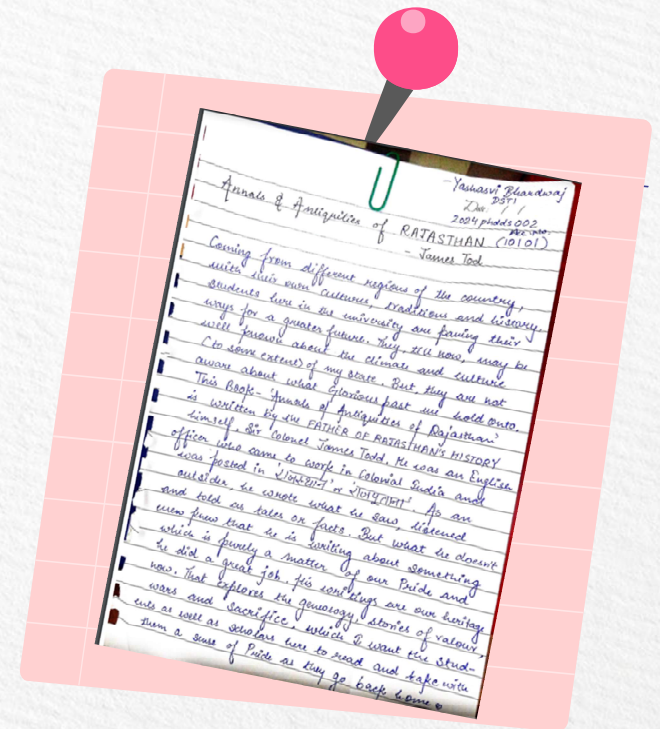 -Yashasvi Bhardwaj
DSTI
2004phdds002
Annals & Antiquities of RAJASTHAN (10101)
- James Tod
Coming from different regions of the country,
with their own cultures, traditions and history.
Students here in the university are paving their
ways for a greater future. They, till now, may be
well known about the climate and culture
(to some extent) of my state. But, they are not
aware about what glorious past we hold onto.
This Book- 'Annals of Antiquities of Rajasthan'
is written by the FATHER OF RAJASTHAN'S HISTORY
himself. Sir Colonel James Todd. He was an English
officer who came to work in Colonial India and
was posted in 'रायथान' or 'राजपूताना'. As an
outsider, he wrote what he saw, listened
and told as tales or facts. But what he doesn't
even knew that he is writing about something
which is purely a matter of our Pride and
he did a great job. His writings are our heritage
now. That explores the geneology, stories of valour,
wars and sacrifice, which I want the stud-
ents as well as scholars here to read and take with
them a sense of Pride as they go back home.